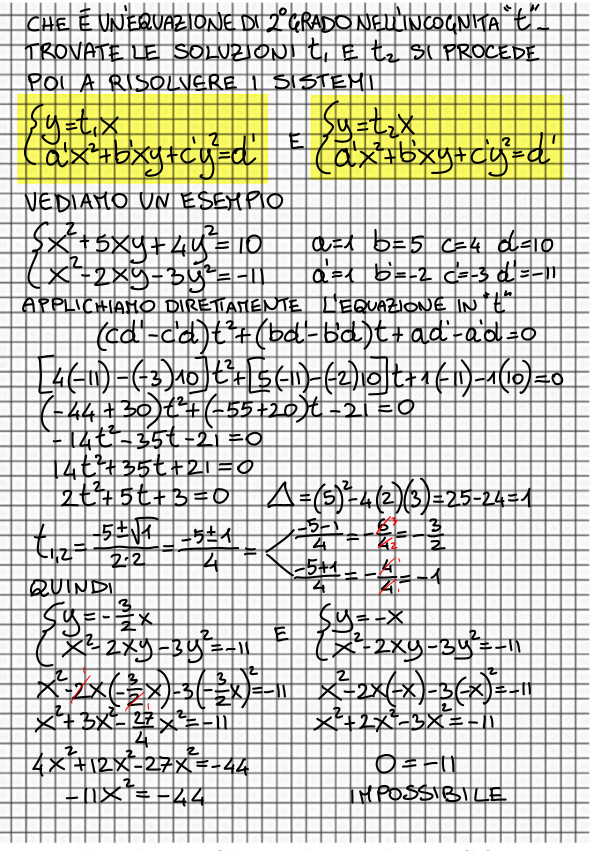 CHE È UN'EQUAZIONE DI 2° GRADO NELL'INCOGNITA "t"_
TROVATE LE SOLUZIONI t₁ E t₂ SI PROCEDE
POI A RISOLVERE I SISTEMI
{y=t₁x
a'x²+b'xy+c'y²=d'
E
{y=t₂x
a'x²+b'xy+c'y²=d'
VEDIAMO UN ESEMPIO
{x²+5xy+4y²=10 a=1 b=5 c=4 d=10
x²-2xy-3y²=-11 a'=1 b'=-2 c'=-3 d'=-11
APPLICHIAMO DIRETTAMENTE L'EQUAZIONE IN "t"
(cd'-c'd)t²+(bd'-b'd)t+ad'-a'd=0
[4(-11)-(-3)10]t²+[5(-11)-(-2)10]t+1(-11)-1(10)=0
(-44+30)t²+(-55+20)t-21=0
-14t²-35t-21=0
14t²+35t+21=0
2t²+5t+3=0 Δ=(5)²-4(2)(3)=25-24=1
t₁,₂=(-5±√1)/(2·2)=(-5±1)/4=
(-5-1)/4=-6/4=-3/2
(-5+1)/4=-4/4=-1
QUINDI
{y=-3/2x
x²-2xy-3y²=-11
E
{y=-x
x²-2xy-3y²=-11
x²-2x(-3/2x)-3(-3/2x)²=-11
x²+3x²-27/4x²=-11
4x²+12x²-27x²=-44
-11x²=-44
x²-2x(-x)-3(-x)²=-11
x²+2x²-3x²=-11
0=-11
IMPOSSIBILE